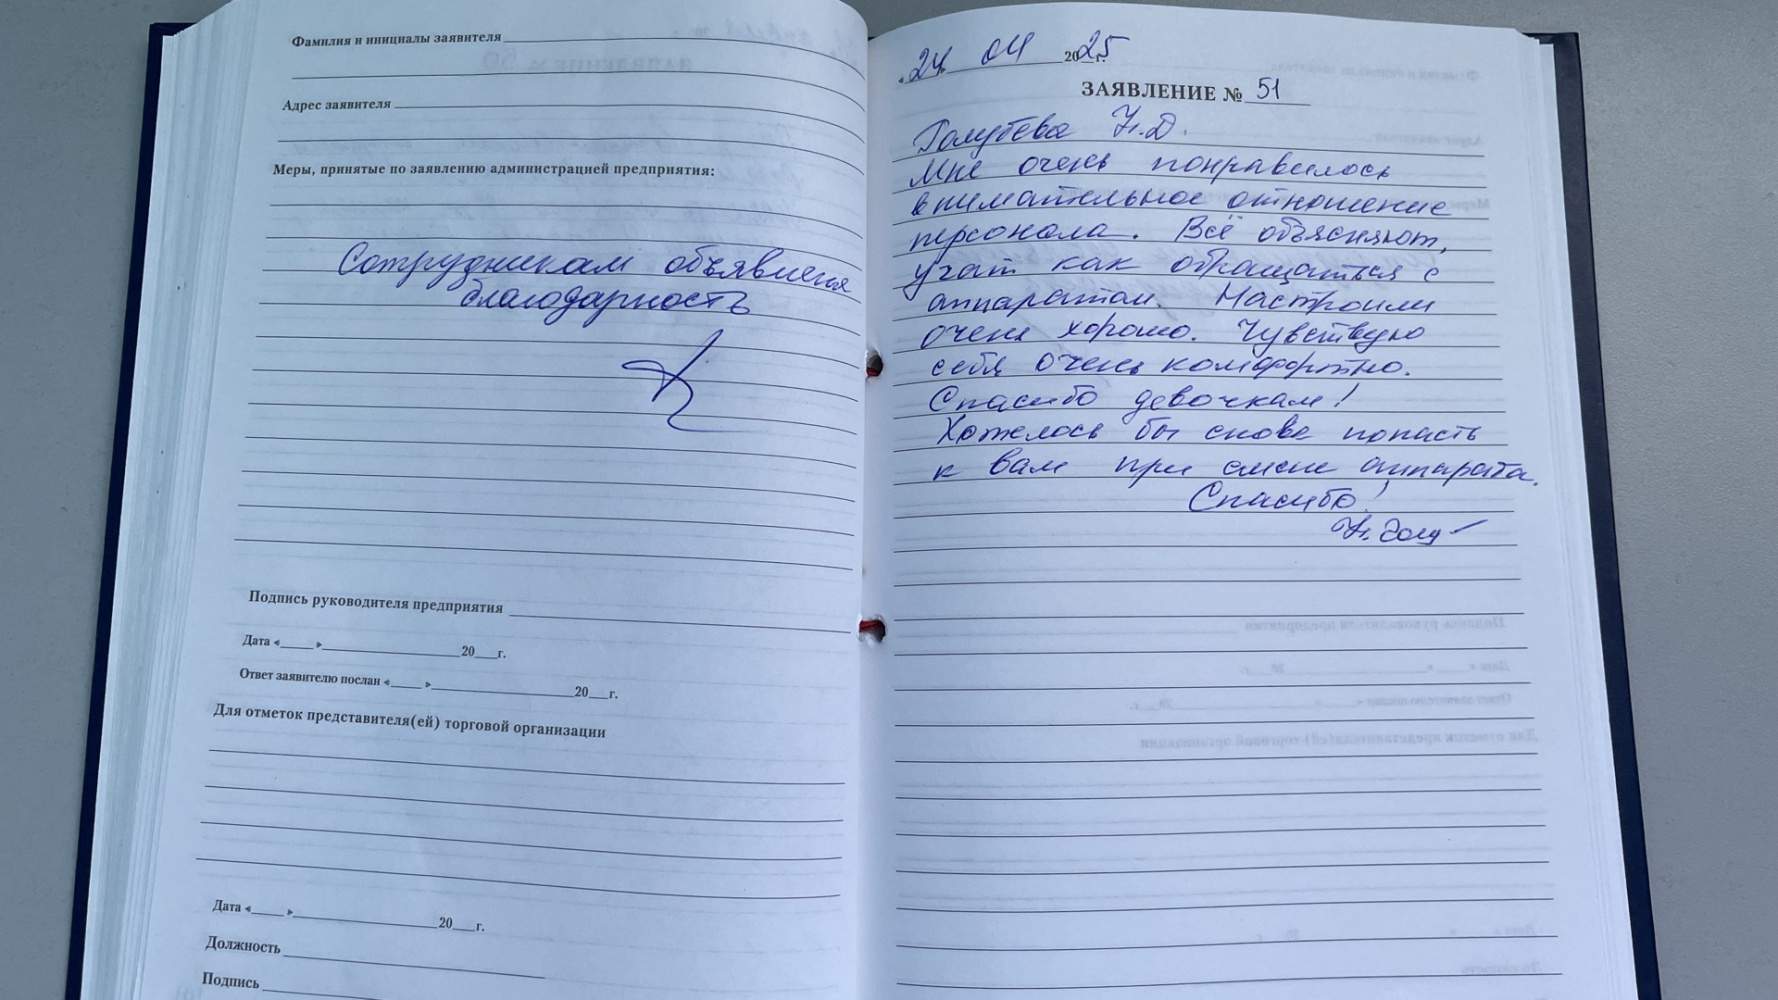 Фамилия и инициалы заявителя
Адрес заявителя
Меры, принятые по заявлению администрацией предприятия:
Сотрудникам объявлена
благодарность
Подпись руководителя предприятия
Дата « » 20 г.
Ответ заявителю послан « » 20 г.
Для отметок представителя(ей) торговой организации
Дата « » 20 г.
Должность
Подпись
«24 04 2025 г.
ЗАЯВЛЕНИЕ № 51
Голубева Н.Д.
Мне очень понравилось
внимательное отношение
персонала. Всё объясняют,
учат как обращаться с
аппаратом. Настроили
очень хорошо. Чувствую
себя очень комфортно.
Спасибо девочкам!
Хотелось бы снова попасть
к вам при смене аппарата.
Спасибо!
Н. Голу